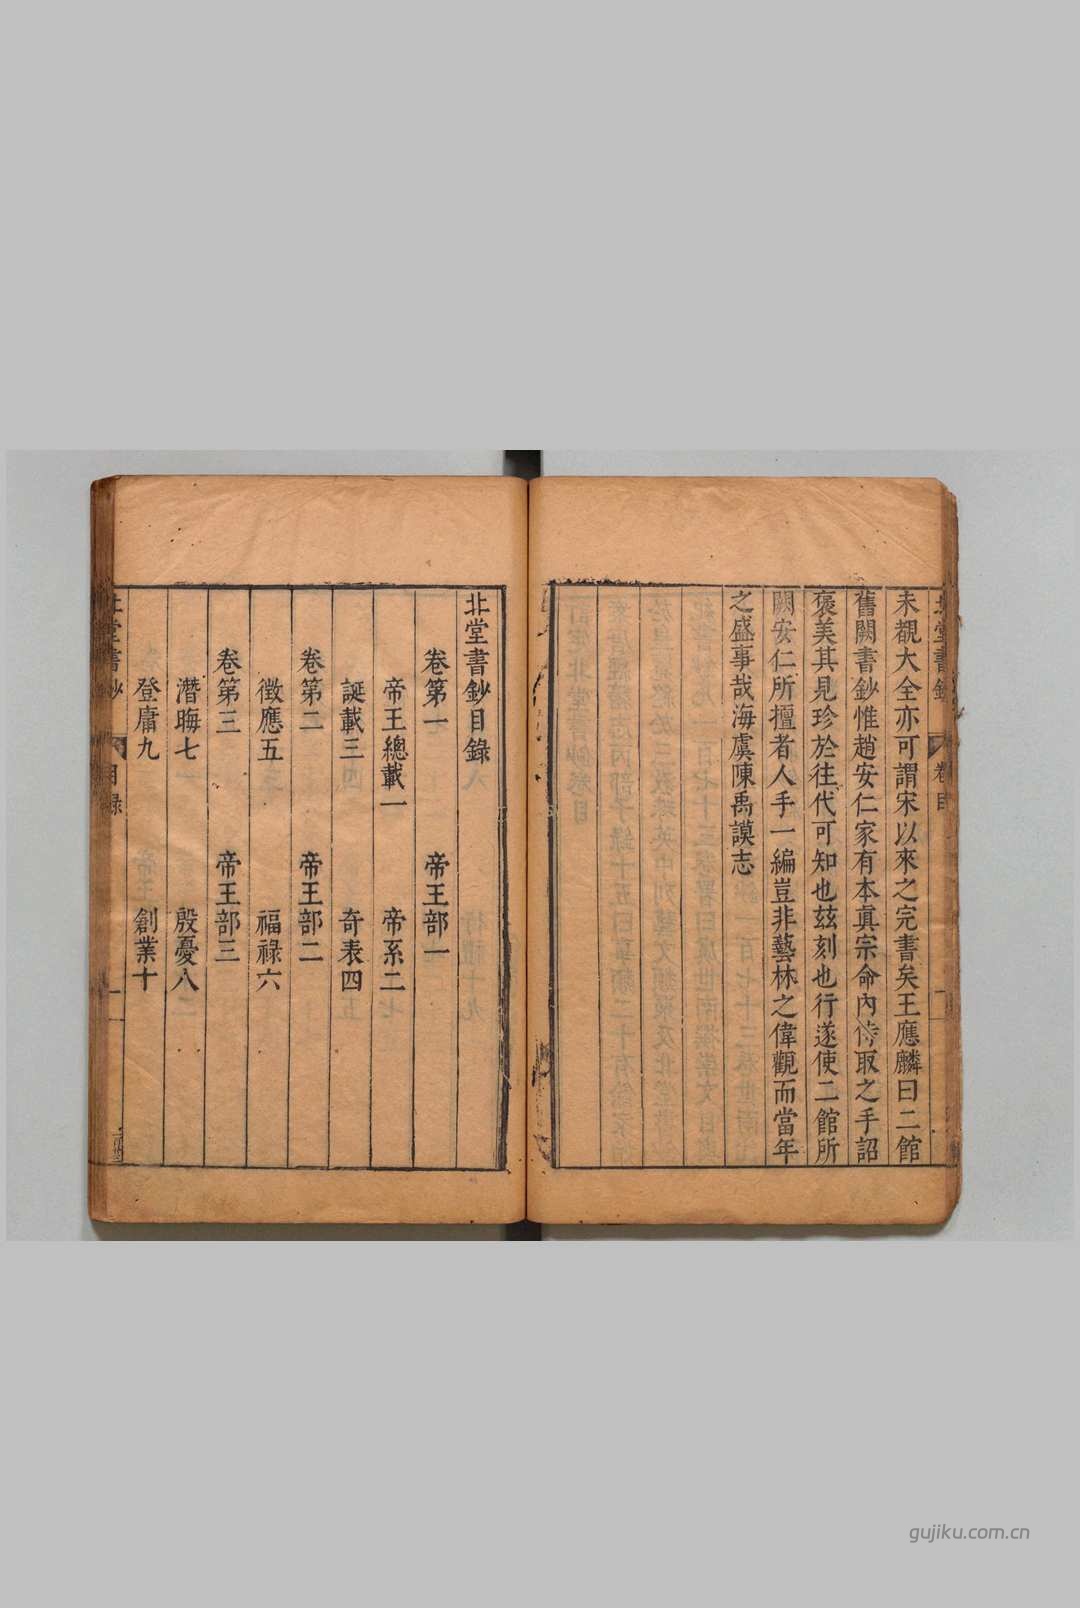 未覩大全亦可謂宋以來之完書矣王應麟曰二館
舊闕書鈔惟趙安仁家有本眞宗命內侍取之手詔
褒美其見珍於往代可知也玆刻也行遂使二館所
闕安仁所擅者人手一編豈非藝林之偉觀而當年
之盛事哉海虞陳禹謨志
北堂書鈔目錄
卷第一 帝王部一
帝王總載一 帝系二
誕載三 奇表四
卷第二 帝王部二
徵應五 福祿六
卷第三 帝王部三
潛晦七 殷憂八
登庸九 創業十
北堂書鈔 目錄 一
gujiku.com.cn